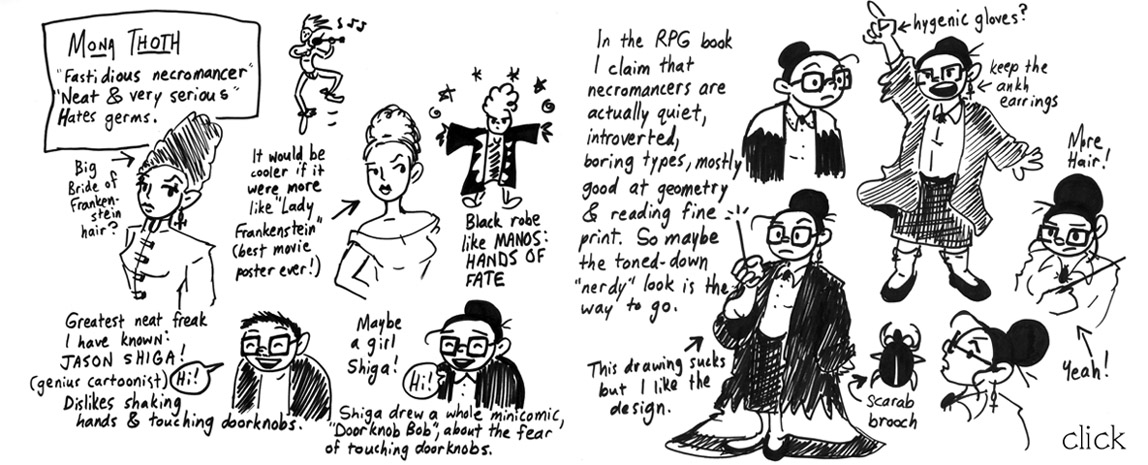 MONA THOTH
"Fastidious necromancer"
"Neat & very serious"
Hates germs.
Big
Bride of
Franken-
stein
hair?
It would be
cooler if it
were more
like "Lady
Frankenstein"
(best movie
poster ever!)
Black robe
like MANOS:
HANDS OF
FATE
Greatest neat freak
I have known:
JASON SHIGA!
(genius cartoonist)
Hi!
Dislikes shaking
hands & touching doorknobs.
Maybe
a girl
Shiga!
Hi!
Shiga drew a whole minicomic,
"Doorknob Bob", about the fear
of touching doorknobs.
In the RPG book
I claim that
necromancers are
actually quiet,
introverted,
boring types, mostly
good at geometry
& reading fine
print. So maybe
the toned-down
"nerdy" look is the
way to go.
This drawing sucks
but I like the
design.
hygenic gloves?
keep the
ankh
earrings
More
Hair!
Yeah!
Scarab
brooch
click